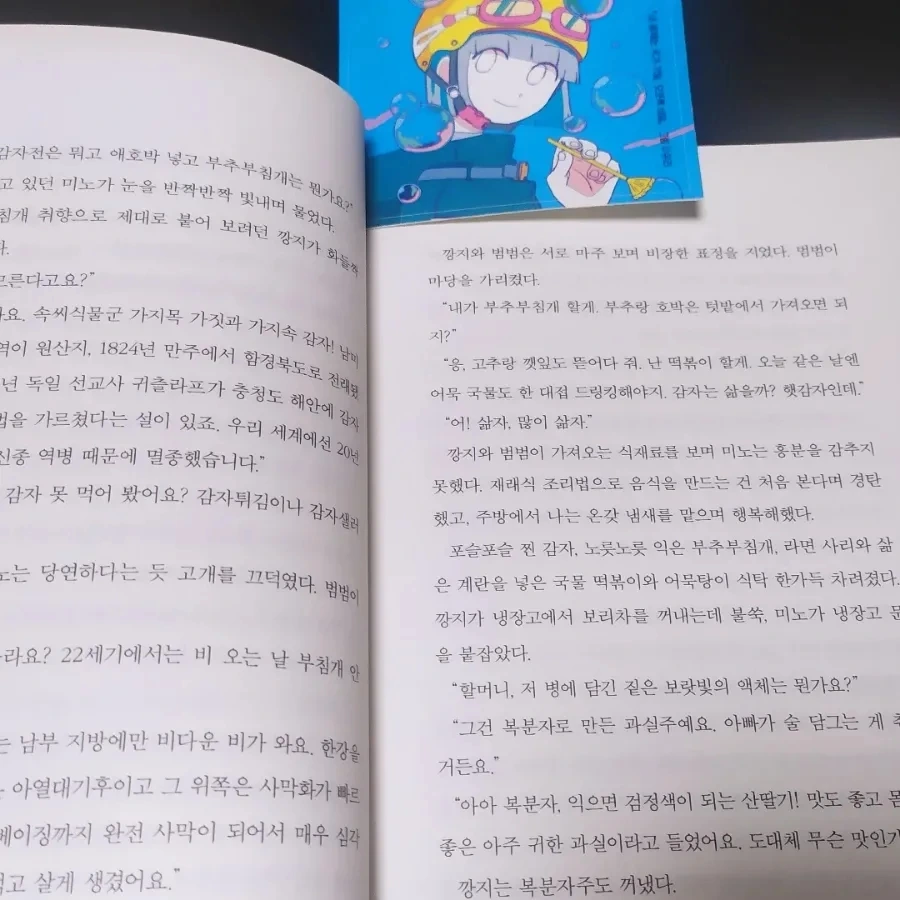 감자전은 뭐고 애호박 넣고 부추부침개는 뭔가요?”
고 있던 미노가 눈을 반짝반짝 빛내며 물었다.
침개 취향으로 제대로 붙어 보려던 깡지가 화들짝
다.
모른다고요?”
요. 속씨식물군 가지목 가짓과 가지속 감자! 남미
역이 원산지, 1824년 만주에서 함경북도로 전래됐
년 독일 선교사 귀츨라프가 충청도 해안에 감자
법을 가르쳤다는 설이 있죠. 우리 세계에선 20년
신종 역병 때문에 멸종했습니다.”
감자 못 먹어 봤어요? 감자튀김이나 감자샐러
노는 당연하다는 듯 고개를 끄덕였다. 범범이
라요? 22세기에서는 비 오는 날 부침개 안
는 남부 지방에만 비다운 비가 와요. 한강을
아열대기후이고 그 위쪽은 사막화가 빠르
베이징까지 완전 사막이 되어서 매우 심각
먹고 살게 생겼어요.”
깡지와 범범은 서로 마주 보며 비장한 표정을 지었다. 범범이
마당을 가리켰다.
“내가 부추부침개 할게. 부추랑 호박은 텃밭에서 가져오면 되
지?”
“응, 고추랑 깻잎도 뜯어다 줘. 난 떡볶이 할게. 오늘 같은 날엔
어묵 국물도 한 대접 드링킹해야지. 감자는 삶을까? 햇감자인데.”
“어! 삶자, 많이 삶자.”
깡지와 범범이 가져오는 식재료를 보며 미노는 흥분을 감추지
못했다. 재래식 조리법으로 음식을 만드는 건 처음 본다며 경탄
했고, 주방에서 나는 온갖 냄새를 맡으며 행복해했다.
포슬포슬 찐 감자, 노릇노릇 익은 부추부침개, 라면 사리와 삶
은 계란을 넣은 국물 떡볶이와 어묵탕이 식탁 한가득 차려졌다.
깡지가 냉장고에서 보리차를 꺼내는데 불쑥, 미노가 냉장고 문
을 붙잡았다.
“할머니, 저 병에 담긴 짙은 보랏빛의 액체는 뭔가요?”
“그건 복분자로 만든 과실주예요. 아빠가 술 담그는 게 취
거든요.”
“아아 복분자, 익으면 검정색이 되는 산딸기! 맛도 좋고 몸
좋은 아주 귀한 과실이라고 들었어요. 도대체 무슨 맛인가
깡지는 복분자주도 꺼냈다.